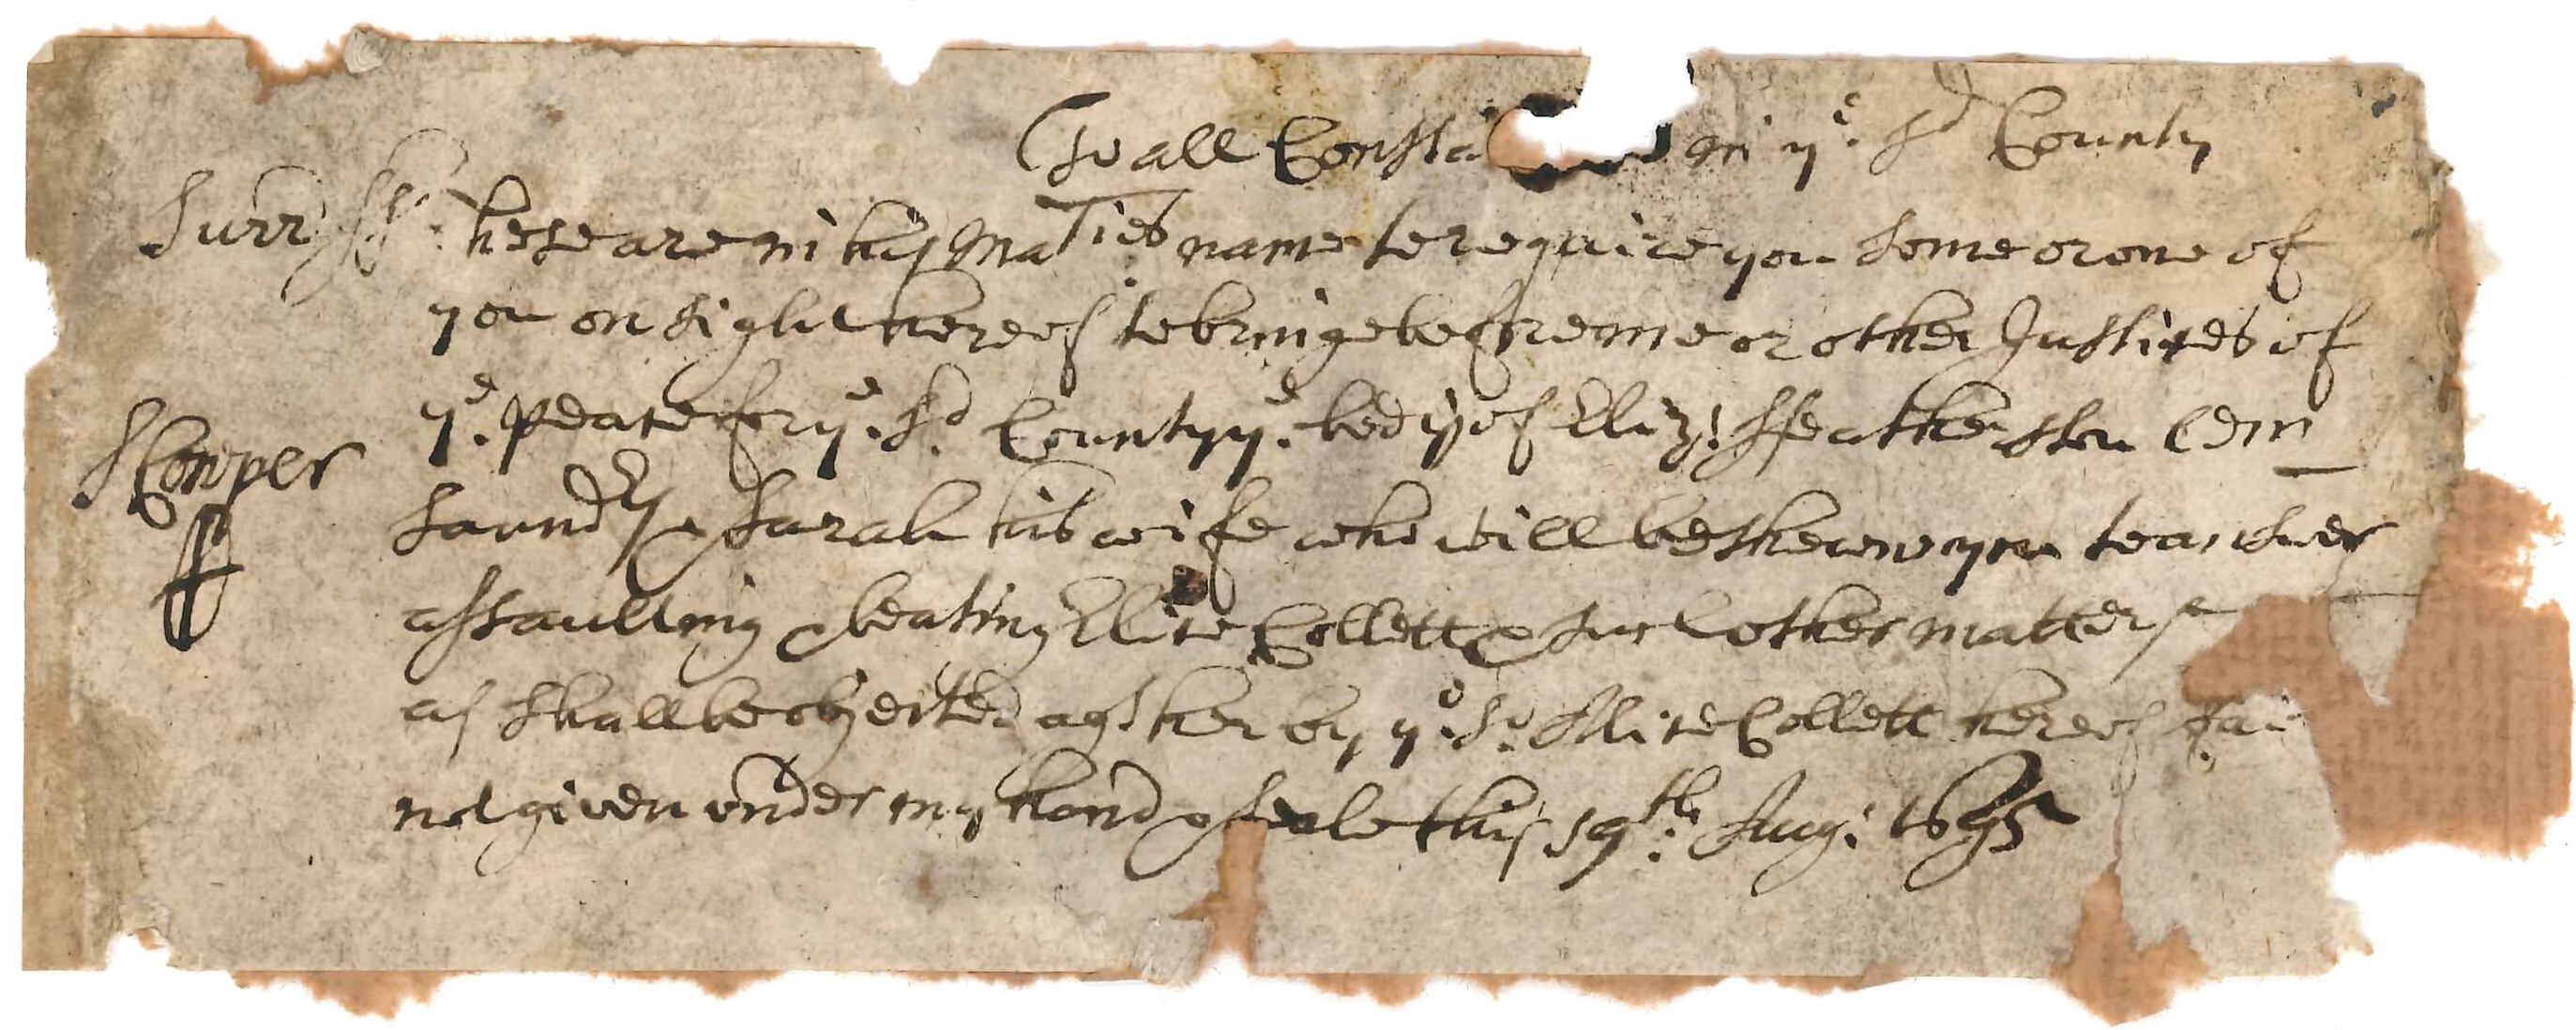 To all Consta in ye. sd County
Surry ss. These are in his Maties name to require you some or one of
you on sight hereof to bringe before me or other Justices of
ye. peace for ye. sd. County ye. body of Eliz: ffeatherston Edm
JCowper
Saundrs & Sarah his wife who will be shewne you to answer
assaulting & beating Elice Collett & such other matters
as shall be objected agst her by ye. sd. Allice Collett hereof
not given under my hand & seale this 19th: Aug: 1695